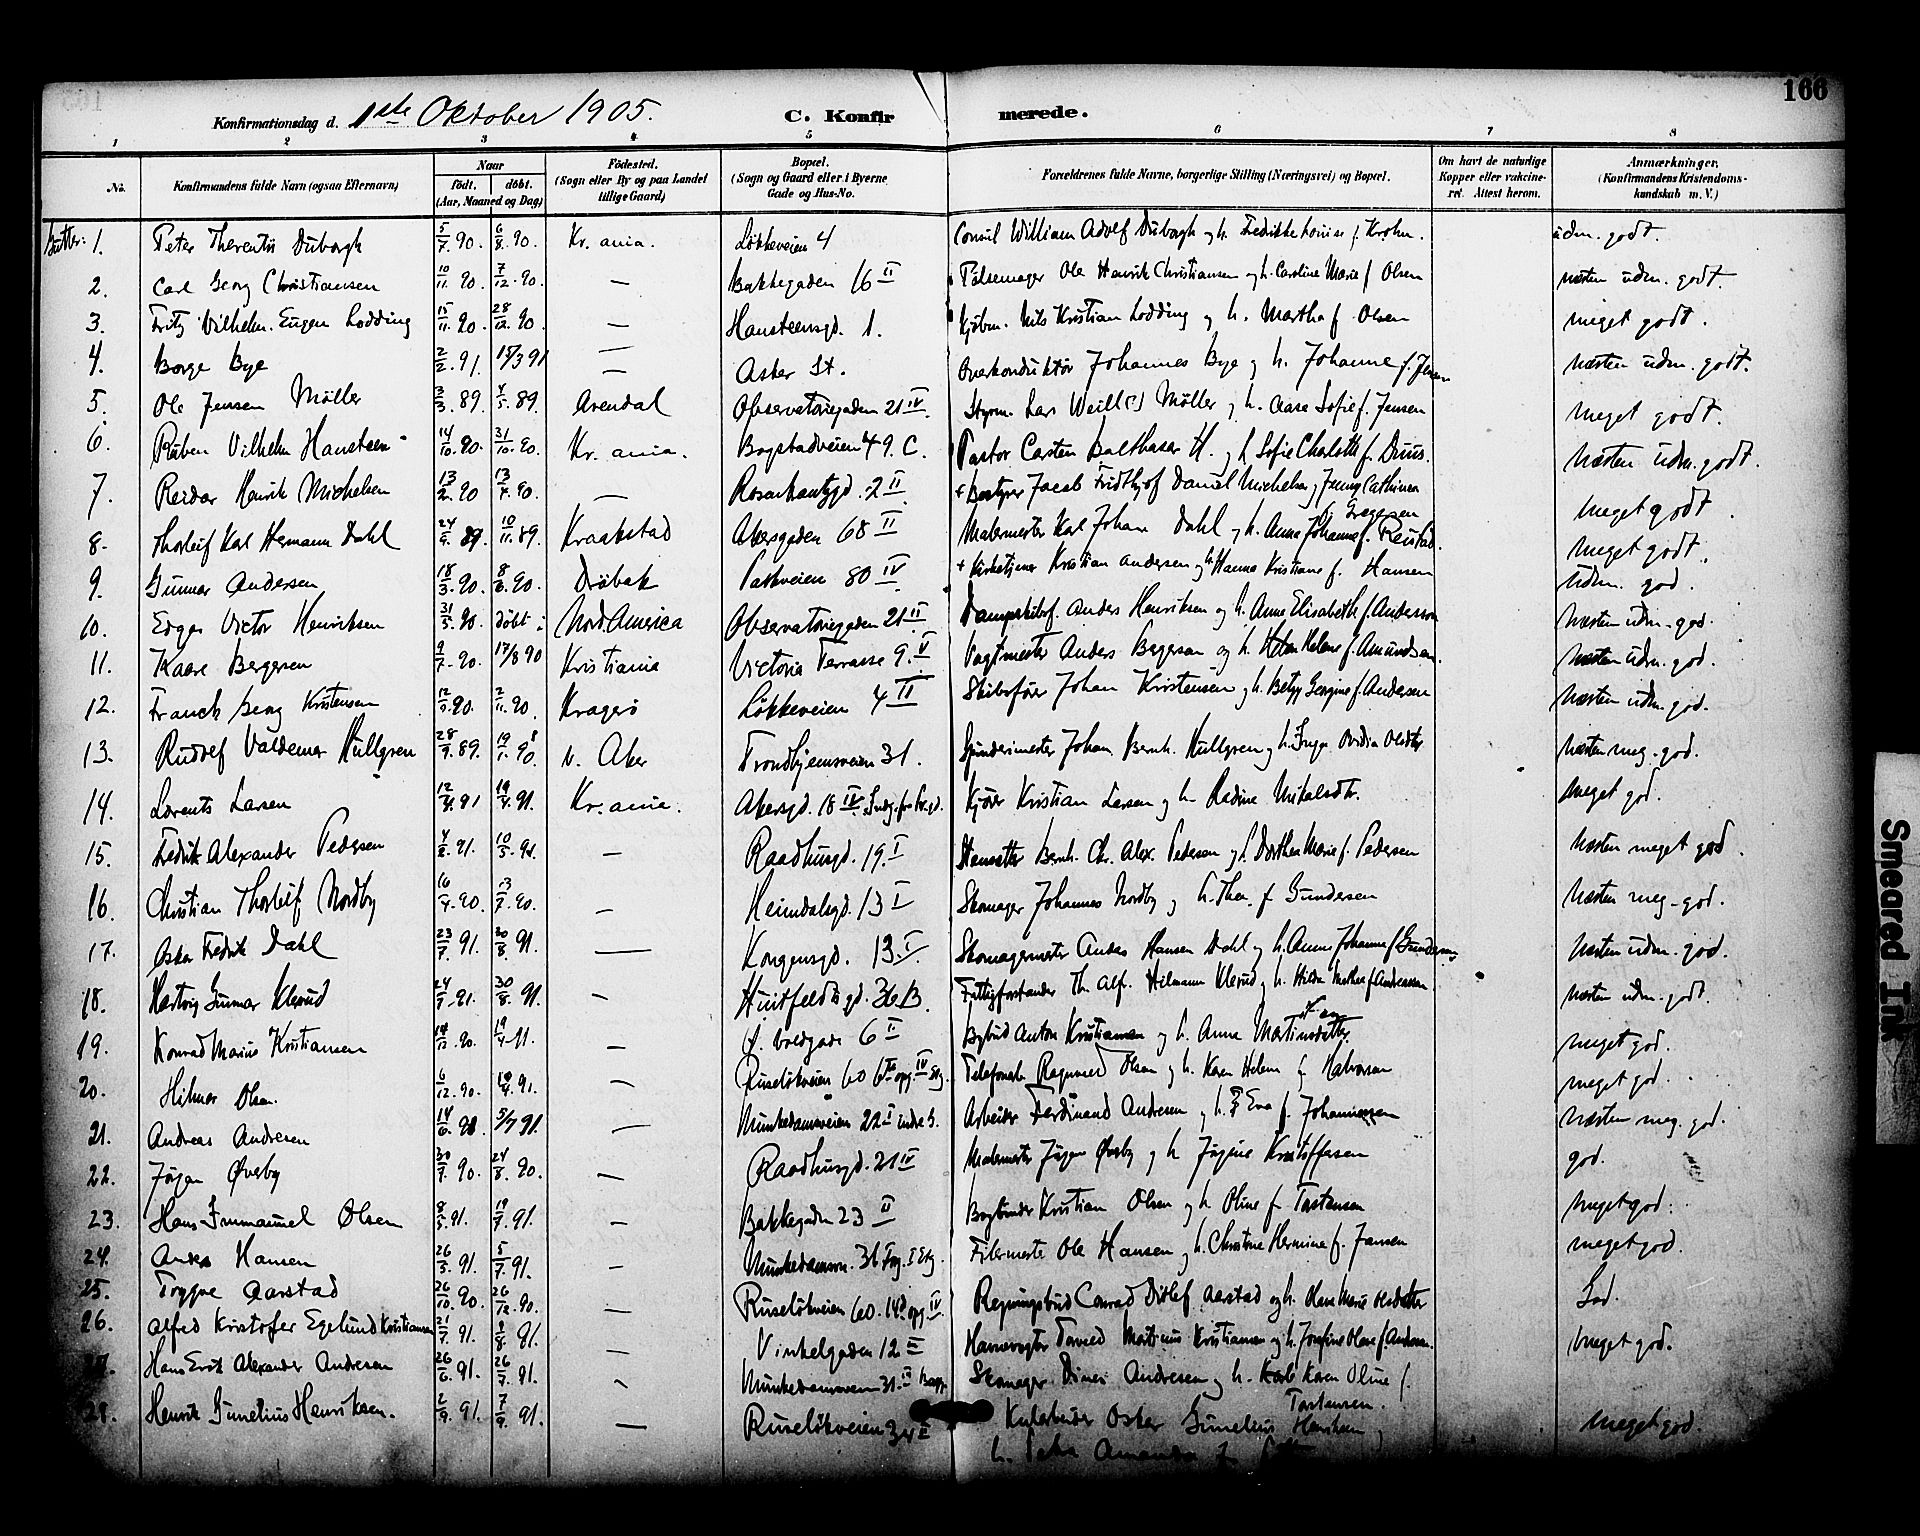 166
Konfirmationsdag d. 1ste Oktober 1905.
C. Konfirmerede.
1 2 3 4 5 6 7 8
No. Konfirmandens fulde Navn (ogsaa Efternavn) Naar født. døbt. (Aar, Maaned og Dag) Fødested. (Sogn eller By og paa Landet tillige Gaard) Bopæl. (Sogn og Gaard eller i Byerne Gade og Hus-No. Forældrenes fulde Navne, borgerlige Stilling (Næringsvei) og Bopæl. Om havt de naturlige Kopper eller vakcineret. Attest herom. Anmærkninger, (Konfirmandens Kristendomskundskab m. V.)
Gutter: 1. Peter Therentis Duborgh 5/7. 90. 6/8. 90. Kr.ania. Løkkeveien 4 Consul William Adolf Duborgh og h. Fredrikke Louise f. Krohn. udm. godt.
2. Carl Georg Christiansen 10/11. 90. 7/12. 90. — Bakkegaden 16 II Pølsemager Ole Henrik Christiansen og h. Caroline Marie f. Olsen næsten udm. godt.
3. Fritz Vilhelm Eugen Lodding 15/11. 90. 28/12. 90. — Hansteensgd. 1. Kjøbm. Nils Kristian Lodding og h. Martha f. Olsen meget godt.
4. Borge Bye 2/2. 91. 15/3 91 — Asker St. Overkonduktør Johannes Bye og h. Johanne f. Jensen næsten udm. godt.
5. Ole Jensen Møller 3/3. 89. 4/5. 89. Arendal Observatoriegaden 21 IV. Styrm. Lars Møller og h. Aase Sofie f. Jensen meget godt.
6. Ruben Vilhelm Hansteen 14/10. 90. 31/10. 90. Kr.ania. Bogstadveien 49. C. Pastor Carsten Balthasar H. og h. Sofie Charlotte f. Duus. Næsten udm. godt.
7. Reidar Henrik Michelsen 13/2. 90 13/4. 90. — Rosenkrantzgd. 2 II + Bestyrer Jacob Fridthjof Daniel Michelsen og Jenny Cathinca f. Gregersen meget godt.
8. Thorleif Karl Hermann Dahl 24/9. 89. 10/11. 89. Kraakstad Akersgaden 68 II Malermester Karl Johan Dahl og h. Anna Johanne f. Reistad. meget godt.
9. Gunnar Andersen 18/3. 90. 8/6. 90. Drøbak Parkveien 80 IV + Kirketjener Kristian Andersen og h. Hanna Kristiane f. Hansen udm. god.
10. Edgar Victor Henriksen 31/5. 90. døbt i Nord.America Observatoriegaden 21 II Dampskibsf. Anders Henriksen og h. Anne Elisabeth f. Andersen Næsten udm. god.
11. Kaare Bergersen 9/7. 90. 17/8 90 Kristiania Victoria Terrasse 9. V Vagtmester Anders Bergersen og h. Helene f. Amundsen. Næsten udm. god.
12. Franck Georg Kristensen 12/9. 90. 2/11. 90. Kragerø Løkkeveien 4 II Skibsfører Johan Kristensen og h. Betzy Georgine f. Andersen Næsten udm. god.
13. Rudolf Valdemar Hullgren 28/9. 89. 19/1. 90. v. Aker Trondhjemsveien 31. Spinderimester Johan Bernh. Hullgren og h. Inga Ovidia Olsdtr. Næsten meg. god.
14. Lorents Larsen 12/3. 91 19/4. 91. Kr.ania. Akersgd. 18 IV. Kjører Kristian Larsen og h. Radine Mikalsdtr. Meget god.
15. Fredrik Alexander Pedersen 4/2. 91. 10/5. 91. — Raadhusgd. 19. I Bernh. Chr. Alex. Pedersen og h. Dorthea Marie f. Pedersen Næsten meget god.
16. Christian Thorleif Nordby 16/4. 90. 13/7. 90. — Heimdalsgd. 13 I Skomager Johannes Nordby og h. Thea f. Gundersen Næsten meg. god.
17. Oskar Fredrik Dahl 23/7. 91. 30/8. 91. — Kongensgd. 13. I Skomagermester Anders Hansen Dahl og h. Anna Johanne f. Gundersen Næsten udm. god.
18. Hartvig Gunnar Klerud 24/7. 91. 30/8. 91. — Huitfeldtsgd. 36 B. Fattigforstander Th. Alf. Hilmann Klerud og h. Hilda Mathea f. Andreassen Næsten udm. godt.
19. Konrad Marius Kristiansen 14/12. 90. 19/4. 91. — f. Voldgade 6 II Bybud Anton Kristiansen og h. Anna Martinsdatter. meget god.
20. Hilmar Olsen. 6/12. 90. 19/4. 91. — Ruseløkveien 60 Telefonarb. Ragnvald Olsen og h. Karen Helene f. Halvorsen meget god.
21. Andreas Andresen 14/6. 90. 5/7 91. — Munkedamsveien 22 I Arbeider Ferdinand Andresen og h. Eva f. Johannessen Næsten meg. god.
22. Jørgen Øverby 30/7. 90. 24/8. 90. — Raadhusgd. 21 IV Malermester Jørgen Øverby og h. Jørgine Kristoffersen god.
23. Hans Immanuel Olsen 8/5. 91. 19/7. 91. — Bakkegaden 23 II Bogbinder Kristian Olsen og h. Oline f. Torstensen meget god.
24. Anders Hansen 26/5. 91. 5/7. 91. — Munkedamsv. 31 Filermester Ole Hansen og h. Christine Hermine f. Jansen meget god.
25. Trygve Aarstad 26/10. 90. 26/12. 90. Ruseløkveien 60. Regningsbud Conrad Ditlef Aarstad og h. Olsdatter God.
26. Alfred Kristofer Egelund Kristiansen 21/7. 91. 9/8. 91. — Vinkelgaden 12 II Havnevogter Martinius Kristiansen og h. Josefine Olava f. Andersen. Meget god.
27. Hans Erik Alexander Andresen 26/6. 91. 26/7. 91. Munkedamsveien 31. II Skomager Andresen og h. Karen Oline f. Torstensen.
28. Henrik Gunelius Henriksen. 2/9. 91. 7/9. 91. — Ruseløkveien 34 II Kularbeider Oskar Gunelius Henriksen og h. Petra Amanda f. meget god.
Smeared Ink